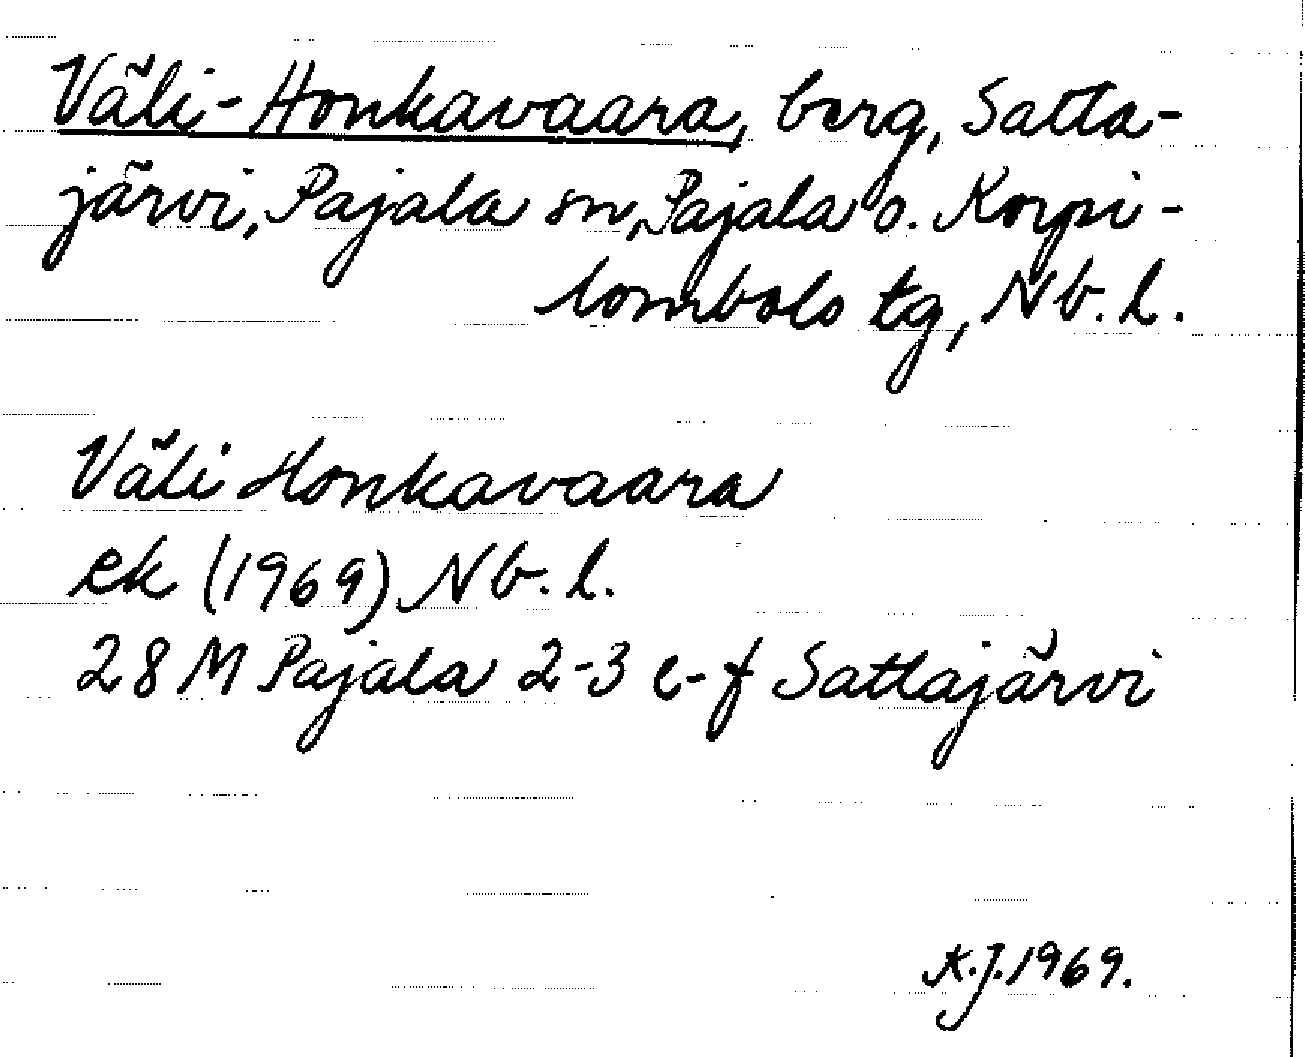 Väli-Honkavaara, berg, Satta-
järvi, Pajala sn, Pajala o. Korpi-
lombolo tg, Nb. l.
Väli Honkavaara
ek (1969) Nb. l.
28 M Pajala 2-3 e-f Sattajärvi
K.J. 1969.